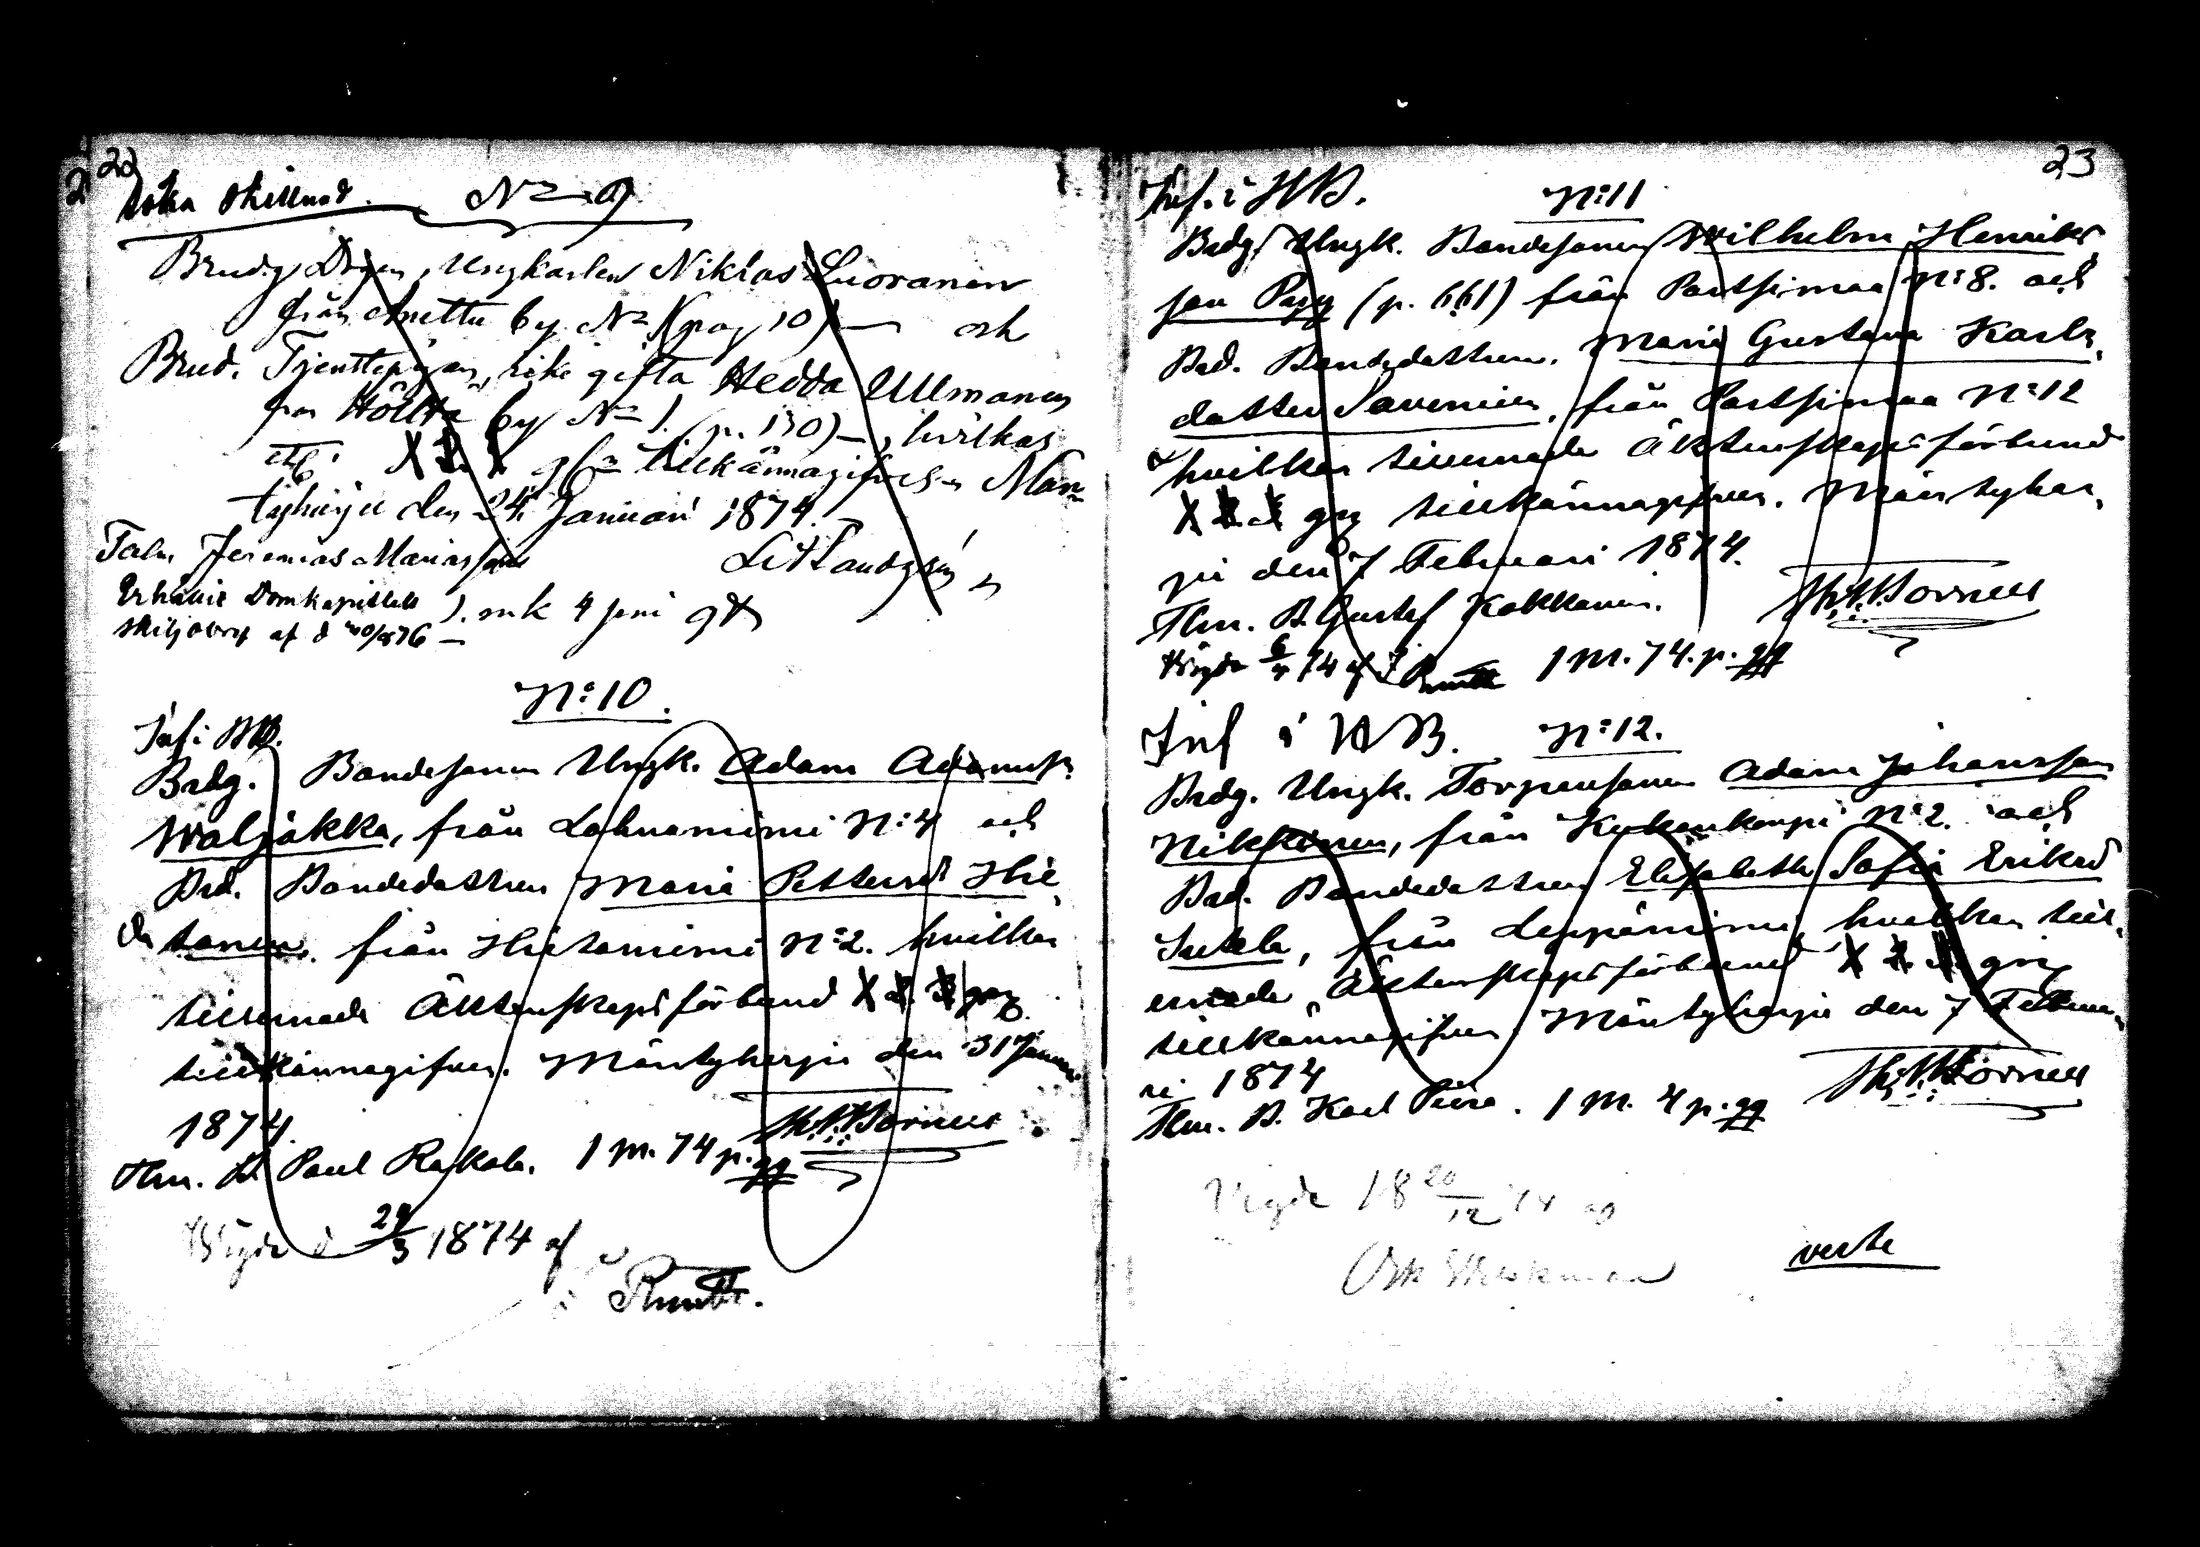 22
Söka skillnad. No 9
Brudg. Drgen, Ungkarlen Niklas Luoranen
från Anettu by No 1 (pag 10) — och
Brud. Tjenstepigan, icke gifta Hedda Ullmanen
från Hölttä by No 1. (p. 130) —, hvilkas
X 2. X g. tillkännagifves. Män-
tyharju den 24 Januari 1874.
Talm. Jeremias Mariasson
Erhållit Domkapitlets 1. mk 4 peni
skiljobref af d 20/8 76 —
N:o 10.
Inf. i HB.
Brdg. Bondesonen Ungk. Adam Adamss.
Waljakka, från Lahnaniemi N:4 och
Brd. Bondedottren Maria Pettersd Hie-
tanen, från Hietaniemi N:2. hvilka
tillernade Äktenskapsförbund X 2. X gng
tillkännagifves. Mäntyharju den 31 Januari
1874.
Tlm. B. Paul Rakola. 1 m. 74 p. gg
Wigde d 29/3 1874 af
23
Inf. i HB. N:o 11
Brdg. Ungk. Bondesonen Wilhelm Henriks
son Papp (p. 661) från Partsimaa N:8. och
Brd. Bondedottren. Maria Gustava Karls-
dotter Savenien, från Partsimaa N:o 12
hvilkas tillernade Äktenskapsförbund
X 2. X gng tillkännagifves. Mäntyhar-
ju den 7 Februari 1874.
Tlm. B. Gustaf Kokkonen.
Wigde 6/4 74 af 1 M. 74. p. gg
Inf i HB. N:o 12.
Brdg. Ungk. Torparesonen Adam Johansson
Nikkinen, från Kyknkoupi N:2. och
Brd. Bondedottren Elisabeth Sofia Eriksd
från Leppäniemi, hvilkas till-
ernade Äktenskapsförbund X 2. X gng
tillkännagifves. Mäntyharju den 7 Februa-
ri 1874
Tlm. B. Karl Piira. 1 M. 4 p. gg
Vigde 18 20/12 74 af
verte